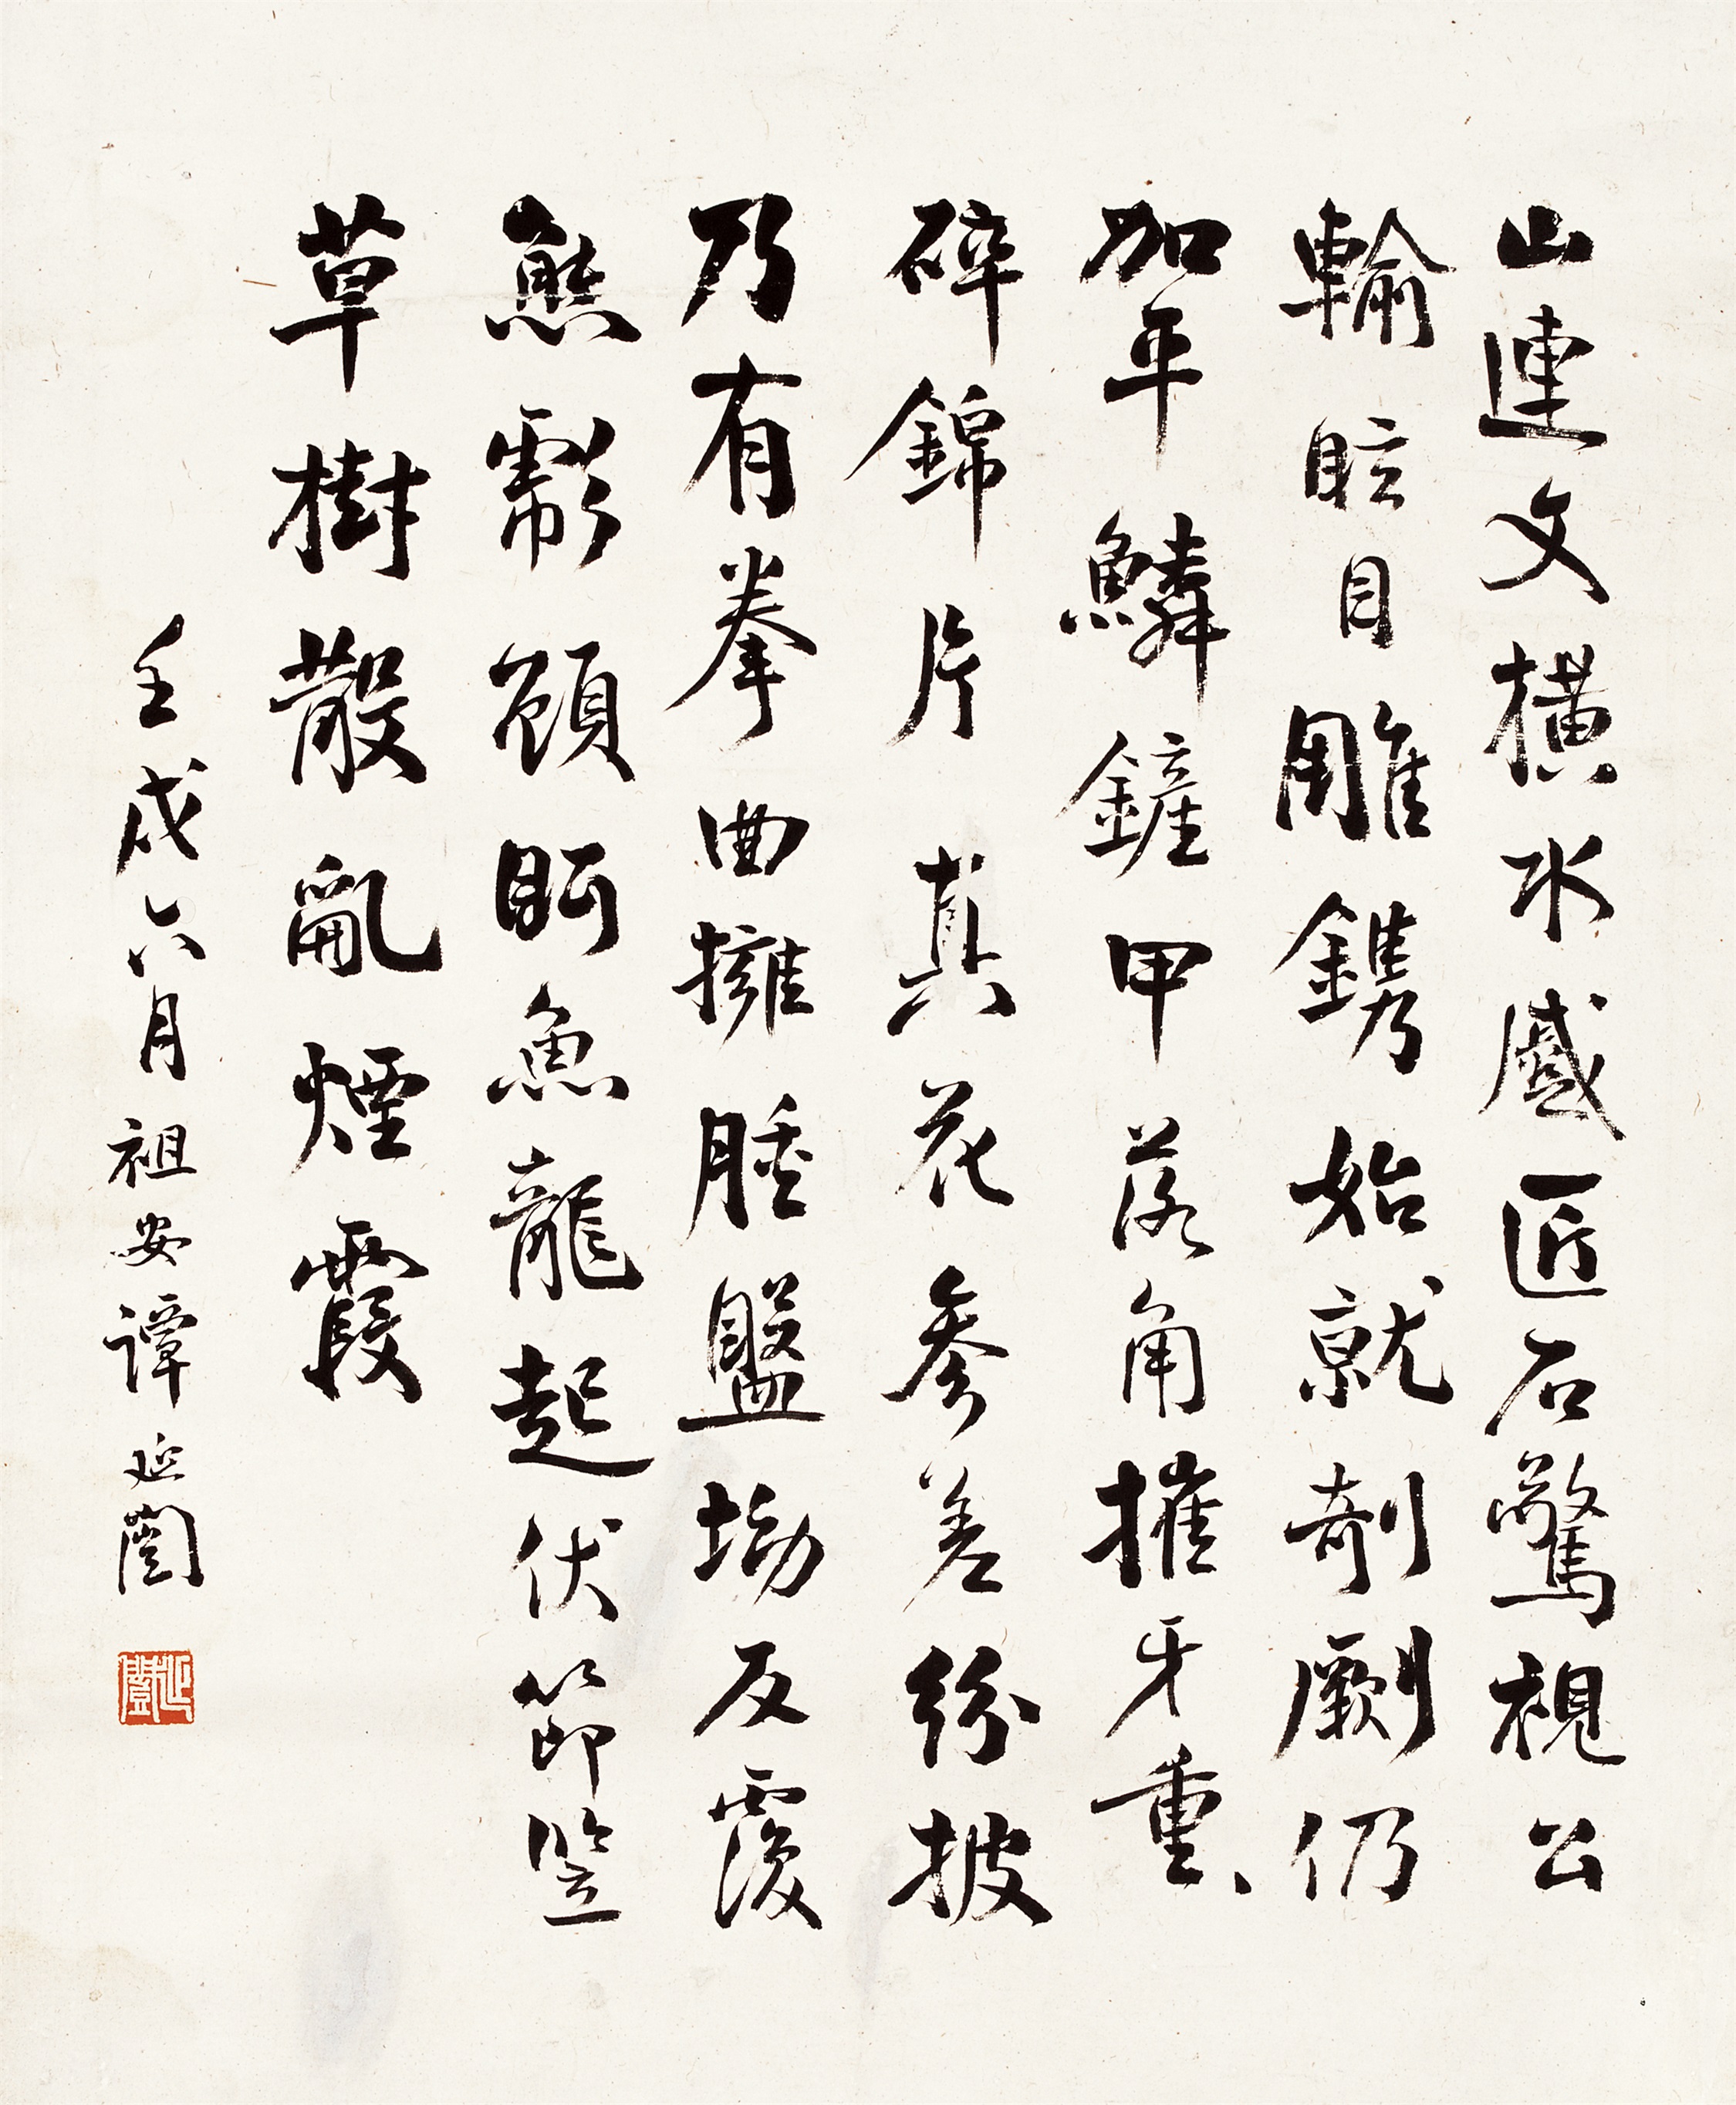 山連文橫水蹙匠石驚視公
輸眩目雕鐫始就剞劂仍
加平鱗鏟甲落角摧牙重、
碎錦片真花參差紛披
乃有拳曲擁腫盤坳反覆
熊彪顧盼魚龍起伏節竪
草樹散亂煙霞
壬戌六月祖安譚延闓
延闓